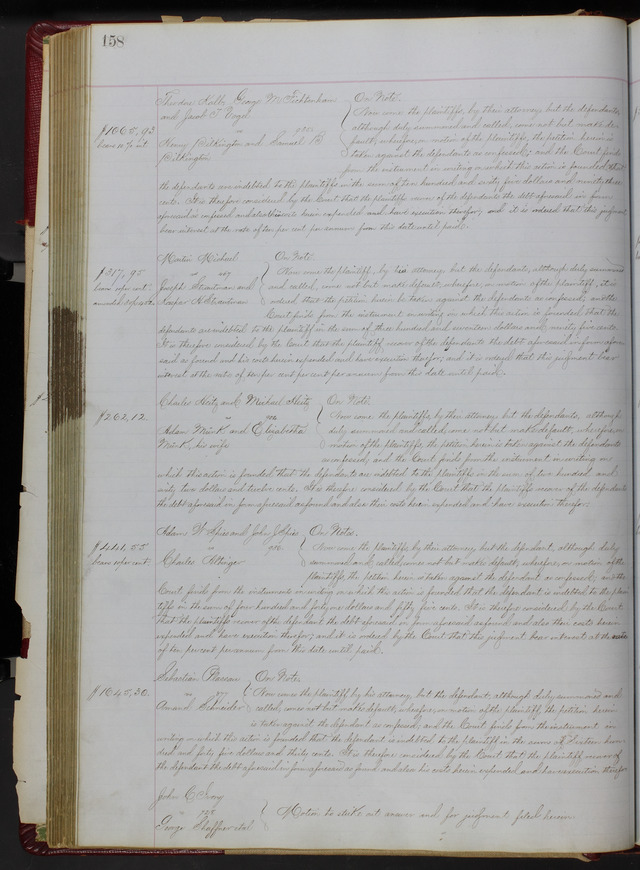 158
Theodore Kalb, George M. Fichtenkam
and Jacob T. Vogel
vs
Henry Bilkington and Samuel B.
Bilkington
On Note.
$1065,93
bears 10 % int.
Now come the plaintiffs, by their attorney but the defendants,
although duly summoned and called, come not but make de-
fault, wherefore, on motion of the plaintiffs, the petition herein is
taken against the defendants as confessed; and the Court finds
from the instrument in writing on which this action is founded that
the defendants are indebted to the plaintiffs in the sum of Ten hundred and sixty five dollars and ninety three
cents. It is therefore considered by the Court that the plaintiffs recover of the defendants the debt aforesaid in form
aforesaid as confessed and also their costs herein expended and have execution therefor; and it is ordered that this judgment
bear interest at the rate of ten per cent per annum from this date until paid.
Martin Michael
vs
Joseph Stuartman and
Kasper H.
On Note.
$317,95
Now come the plaintiff, by his attorney but the defendants, although duly summoned
and called, come not but make default, wherefore, on motion of the plaintiff, it is
ordered that the petition herein be taken against the defendants as confessed, and the
Court finds from the instrument in writing on which this action is founded that the
defendants are indebted to the plaintiff in the sum of three hundred and seventeen dollars and ninety five cents.
It is therefore considered by the Court that the plaintiff recover of the defendants the debt aforesaid in form afore-
said as found and his costs herein expended and have execution therefor; and it is ordered that this judgment bear
interest at the rate of ten per cent per cent per annum from this date until paid.
Charles Heitz and Michael Heitz
vs
Adam Mink and Elizabetha
Mink, his wife
On Note.
$262,12
Now come the plaintiffs by their attorney but the defendants, although
duly summoned and called, come not but make default, wherefore, on
motion of the plaintiffs, the petition herein is taken against the defendants
as confessed, and the Court finds from the instrument in writing on
which this action is founded that the defendants are indebted to the plaintiffs in the sum of two hundred and
sixty two dollars and twelve cents. It is therefore considered by the Court that the plaintiffs recover of the defendants
the debt aforesaid in form aforesaid as found and also their costs herein expended and have execution therefor.
Adam W. Spies and John J. Spies
vs
Charles Ittinger
On Notes.
$441,55
bears 10 per cent.
Now come the plaintiffs by their attorney, but the defendant, although duly
summoned and called comes not but makes default; wherefore, on motion of the
plaintiffs, the petition herein is taken against the defendant as confessed; and the
Court finds from the instruments in writing on which the action is founded that the defendant is indebted to the plain-
tiffs in the sum of four hundred and forty one dollars and fifty five cents. It is therefore considered by the Court
that the plaintiffs recover of the defendant the debt aforesaid in form aforesaid as found and also their costs herein
expended and have execution therefor; and it is ordered by the Court that this judgment bear interest at the rate
of ten per cent per annum from this date until paid.
Sebastian
vs 877
Amand Schneider
On Note.
$1645,30.
Now comes the plaintiff by his attorney, but the defendant, although duly summoned and
called, comes not but makes default, wherefore, on motion of the plaintiff, the petition herein
is taken against the defendant as confessed; and the Court finds from the instrument in
writing on which this action is founded that the defendant is indebted to the plaintiff in the sum of Sixteen hun-
dred and forty five dollars and thirty cents. It is therefore considered by the Court that the plaintiff recover of
the defendant the debt aforesaid in form aforesaid as found and also his costs herein expended and have execution therefor.
John C.
vs
George Shaffner et al
Motion to strike out answer and for judgment filed herein.